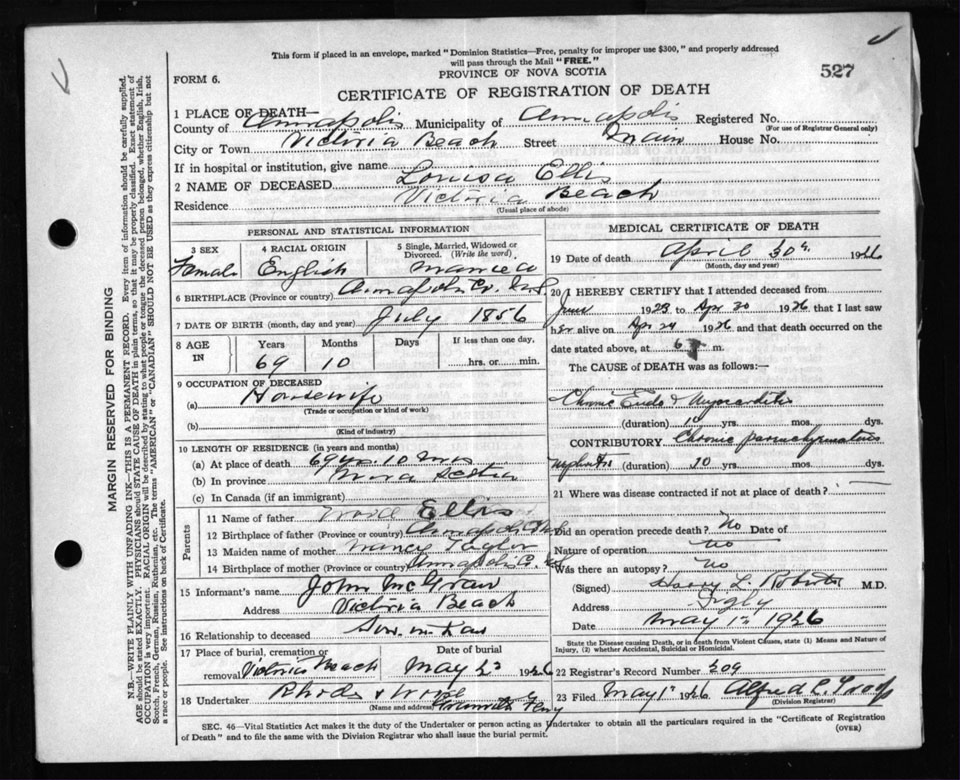 This form if placed in an envelope, marked "Dominion Statistics—Free, penalty for improper use $300," and properly addressed
will pass through the Mail "FREE."
527
FORM 6.
PROVINCE OF NOVA SCOTIA
CERTIFICATE OF REGISTRATION OF DEATH
1 PLACE OF DEATH—
County of Annapolis Municipality of Annapolis Registered No.
(For use of Registrar General only)
City or Town Victoria Beach Street Main House No.
If in hospital or institution, give name
2 NAME OF DECEASED Louisa Ellis
Residence Victoria Beach
(Usual place of abode)
PERSONAL AND STATISTICAL INFORMATION
3 SEX Female
4 RACIAL ORIGIN English
5 Single, Married, Widowed or Divorced. (Write the word) Married
6 BIRTHPLACE (Province or country) Annapolis Co. N.S.
7 DATE OF BIRTH (month, day and year) July 1856
8 AGE IN Years 69 Months 10 Days If less than one day, hrs. or min.
9 OCCUPATION OF DECEASED
(a) Housewife
(Trade or occupation or kind of work)
(b)
(Kind of industry)
10 LENGTH OF RESIDENCE (in years and months)
(a) At place of death 69 yrs. 10 mos
(b) In province Nova Scotia
(c) In Canada (if an immigrant)
Parents
11 Name of father Ellis
12 Birthplace of father (Province or country) Annapolis Co. N.S.
13 Maiden name of mother Nancy Taylor
14 Birthplace of mother (Province or country) Annapolis Co. N.S.
15 Informant's name John McGraw
Address Victoria Beach
16 Relationship to deceased Son in Law
17 Place of burial, cremation or removal Victoria Beach
Date of burial May 2 1926
18 Undertaker Rhods &
(Name and address) Granville Ferry
MEDICAL CERTIFICATE OF DEATH
19 Date of death April 30th 1926
(Month, day and year)
20 I HEREBY CERTIFY that I attended deceased from
June 1923 to Apr 30 1926 that I last saw
her alive on Apr 24 1926 and that death occurred on the
date stated above, at 6 m.
The CAUSE of DEATH was as follows:—
Chronic Endo & Myocarditis
(duration) 10 yrs. mos. dys.
CONTRIBUTORY Chronic parenchymatous
nephritis (duration) 10 yrs. mos. dys.
21 Where was disease contracted if not at place of death?
Did an operation precede death? No Date of
Nature of operation no
Was there an autopsy? no
(Signed) Harry L. Roberts M.D.
Address Digby
Date May 1st 1926
State the Disease causing Death, or in death from Violent Causes, state (1) Means and Nature of
Injury, (2) whether Accidental, Suicidal or Homicidal.
22 Registrar's Record Number 209
23 Filed May 1st 1926 Alfred C.
(Division Registrar)
SEC. 46—Vital Statistics Act makes it the duty of the Undertaker or person acting as Undertaker to obtain all the particulars required in the "Certificate of Registration
of Death" and to file the same with the Division Registrar who shall issue the burial permit.
(OVER)
MARGIN RESERVED FOR BINDING
N.B.—WRITE PLAINLY WITH UNFADING INK—THIS IS A PERMANENT RECORD. Every item of information should be carefully supplied.
AGE should be stated EXACTLY. PHYSICIANS should STATE CAUSE OF DEATH in plain terms, so that it may be properly classified. Exact statement of
OCCUPATION is very important. RACIAL ORIGIN will be described by stating to what people or tongue the deceased person belonged, whether English, Irish,
Scotch, French, German, Russian, Ruthenian, etc. The terms "AMERICAN" or "CANADIAN" SHOULD NOT BE USED as they express citizenship but not
a race or people. See instructions on back of Certificate.